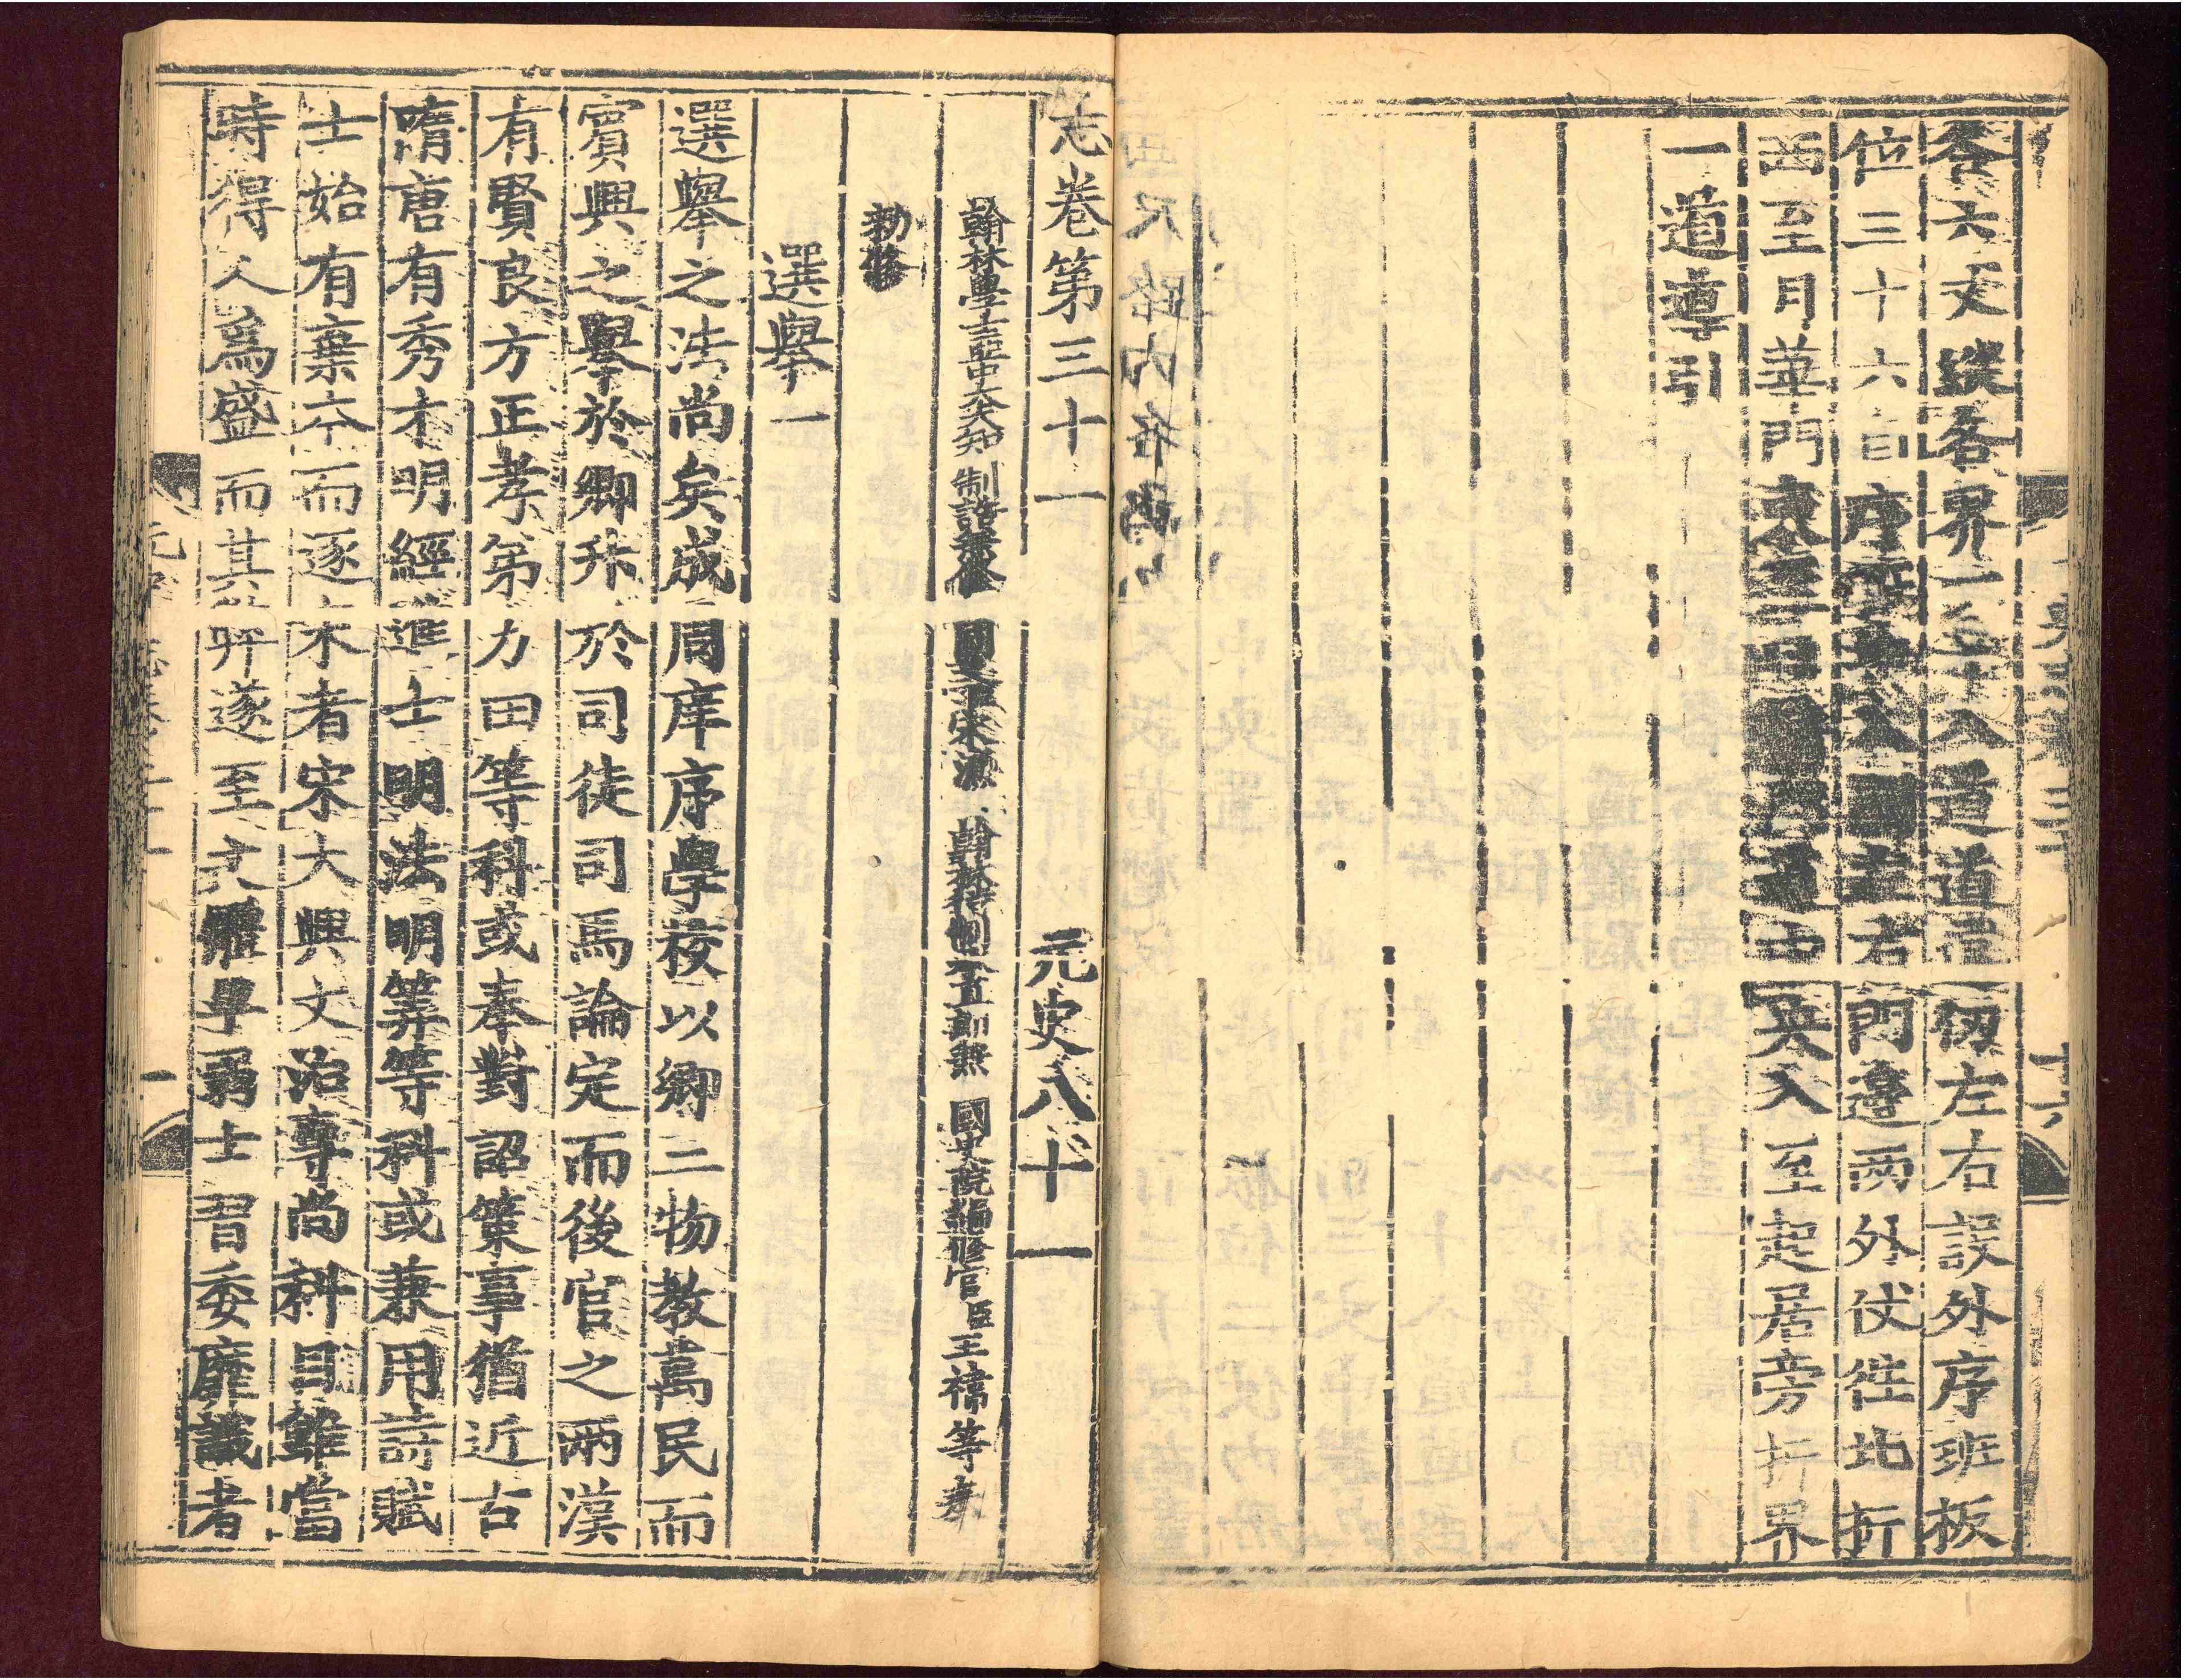 各六丈縱各界一至十八道道崔伺左右設外序班板
位三十六自序班入者門邊兩外仗往北折
西至月華門由英入至起居旁折界
一道導引
志卷第三十一 元史八十一
翰林學士亞中大夫知制誥兼修國史臣宋濂 翰林待制承直郎兼國史院編修官臣王禕等奉
勑修
選舉一
選舉之法尚矣成周庠序學校以鄉三物教萬民而
賓興之舉於鄉升於司徒司馬論定而後官之兩漢
有賢良方正孝弟力田等科或奉對詔策事猶近古
隋唐有秀才明經進士明法明算等科或兼用詩賦
士始有棄本而逐末者宋大興文治專尚科目雖當
時得人爲盛而其弊遂至文體卑弱士習委靡識者
元史志卷三十一
一